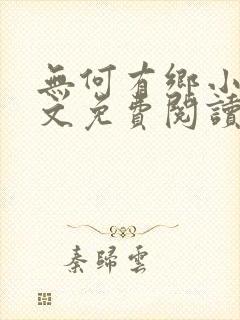 無何有鄉小
文免費閱讀
秦歸雲